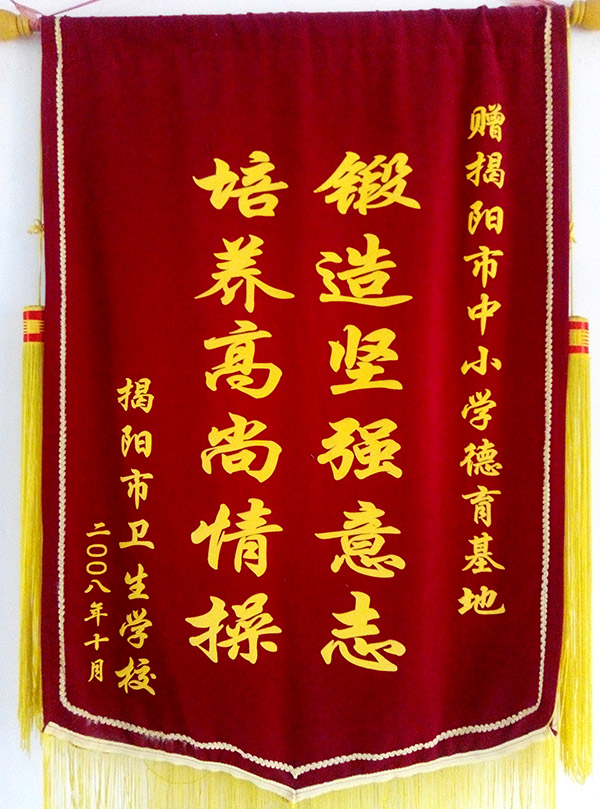 赠揭阳市中小学德育基地
锻造坚强意志
培养高尚情操
揭阳市卫生学校
二〇〇八年十月